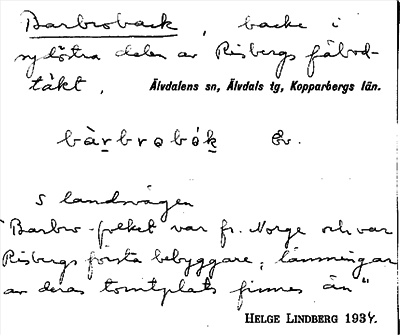 Barbroback, backe i
sydöstra delen av Risbergs fäbod-
täkt.
Älvdalens sn, Älvdals tg, Kopparbergs län.
bàrbrobók Ev.
S landsvägen
"Barbro-folket var fr. Norge och var
Risbergs första bebyggare; lämningar
av deras tomtplats finnes än"
HELGE LINDBERG 1934.